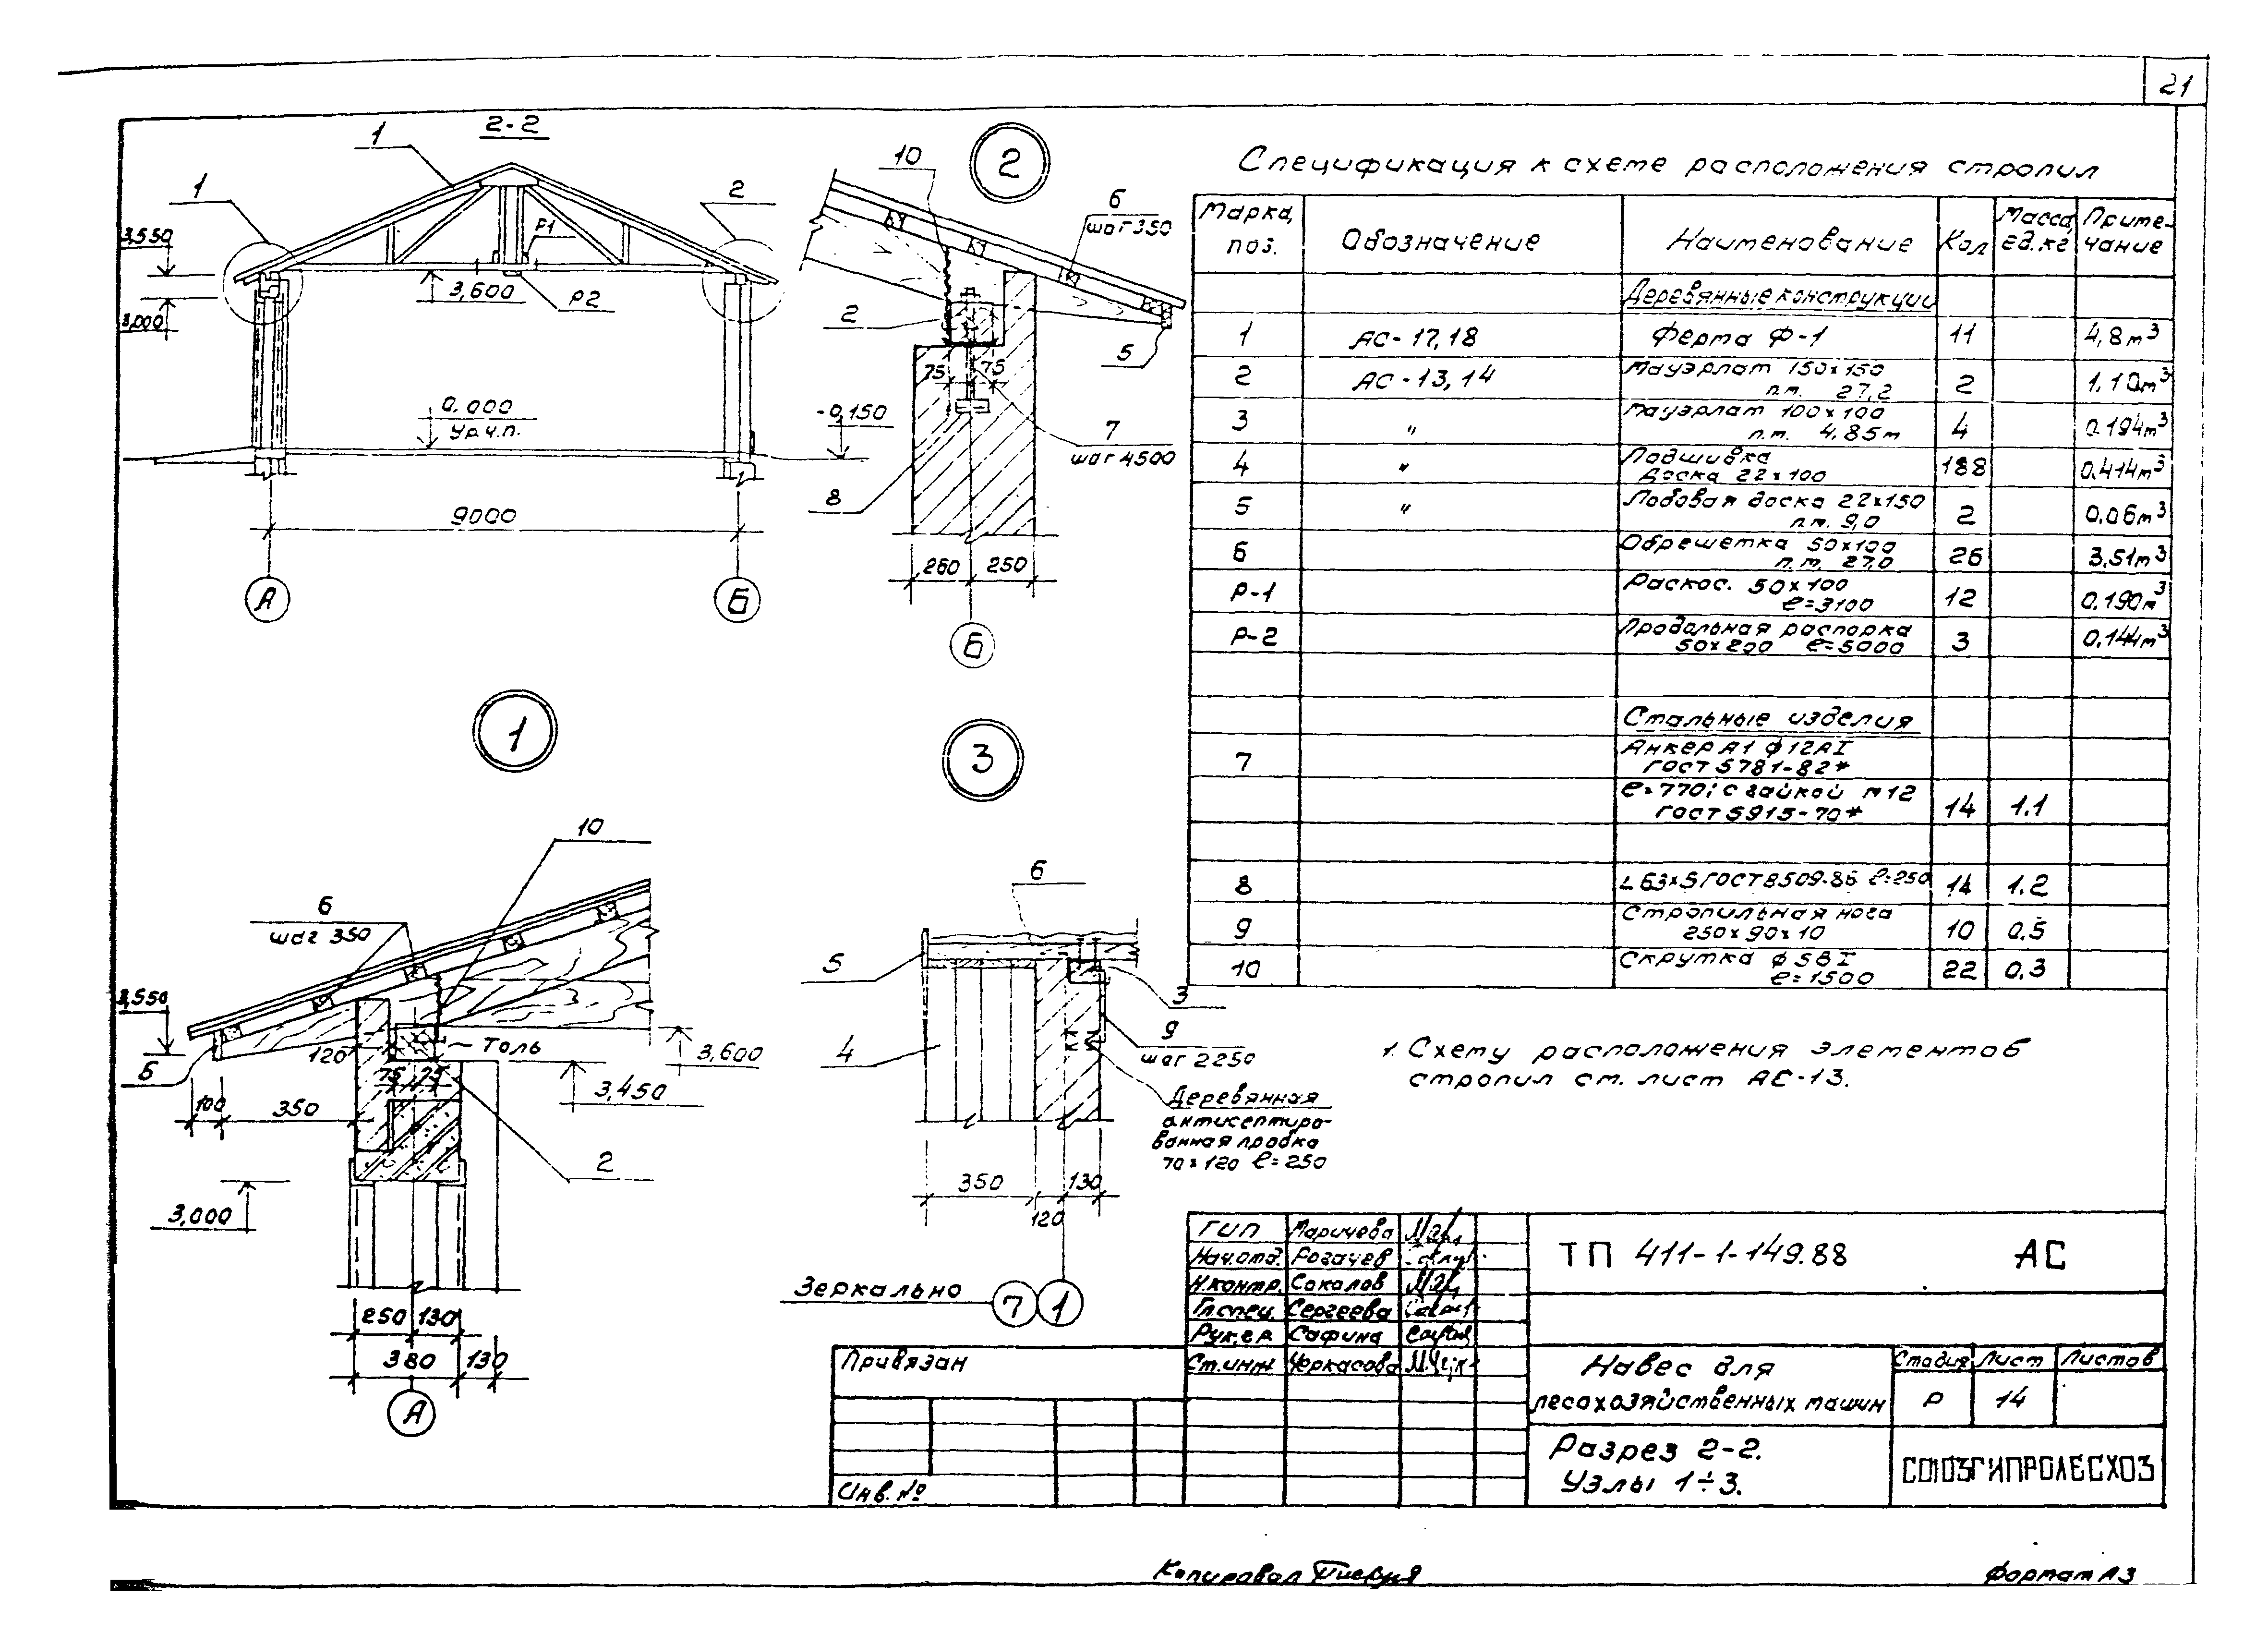 21
2-2
1
1
2
3,550
3,000
Р1
3,600
Р2
0,000
Ур.ч.п.
-0,150
9000
А
Б
2
10
6
шаг 350
2
5
75
75
7
шаг 4500
8
260
250
Б
1
10
6
шаг 350
3,550
5
120
~ Толь
3,600
75
75
3,450
100
350
2
3,000
250
130
380
130
А
3
6
5
3
4
9
шаг 2250
Деревянная
антисептиро-
ванная пробка
70×120 ℓ=250
350
130
120
Зеркально
7
1
Спецификация к схеме расположения стропил
Марка, поз. Обозначение Наименование Кол Масса ед.кг Приме-чание
Деревянные конструкции
1 АС-17,18 Ферма Ф-1 11 4,8м³
2 АС-13,14 Мауэрлат 150×150 п.м. 27,2 2 1.10м³
3 " Мауэрлат 100×100 п.м. 4,85м 4 0.194м³
4 " Подшивка Доска 22×100 188 0.414м³
5 " Лобовая доска 22×150 п.м. 9,0 2 0,06м³
6 Обрешетка 50×100 п.м. 27,0 26 3,51м³
Р-1 Раскос. 50×100 ℓ=3100 12 0,190м³
Р-2 Продольная распорка 50×200 ℓ=5000 3 0,144м³
Стальные изделия
7 Анкер А1 ф12АI ГОСТ 5781-82*
ℓ=770; с гайкой М12 ГОСТ 5915-70* 14 1.1
8 ∟63×5 ГОСТ 8509-86 ℓ=250 14 1.2
9 Стропильная нога 250×90×10 10 0.5
10 Скрутка ф5ВI ℓ=1500 22 0,3
1. Схему расположения элементов
стропил см. лист АС-13.
ГИП Маричева
Нач.отд. Рогачев
Н.контр. Соколов
Гл.спец. Сергеева
Рук.гр. Сафина
Ст.инж Черкасова
ТП 411-1-149.88 АС
Навес для
лесохозяйственных машин
Стадия Лист Листов
Р 14
Разрез 2-2.
Узлы 1÷3.
СОЮЗГИПРОЛЕСХОЗ
Привязан
Инв.№
Копировал
Формат А3